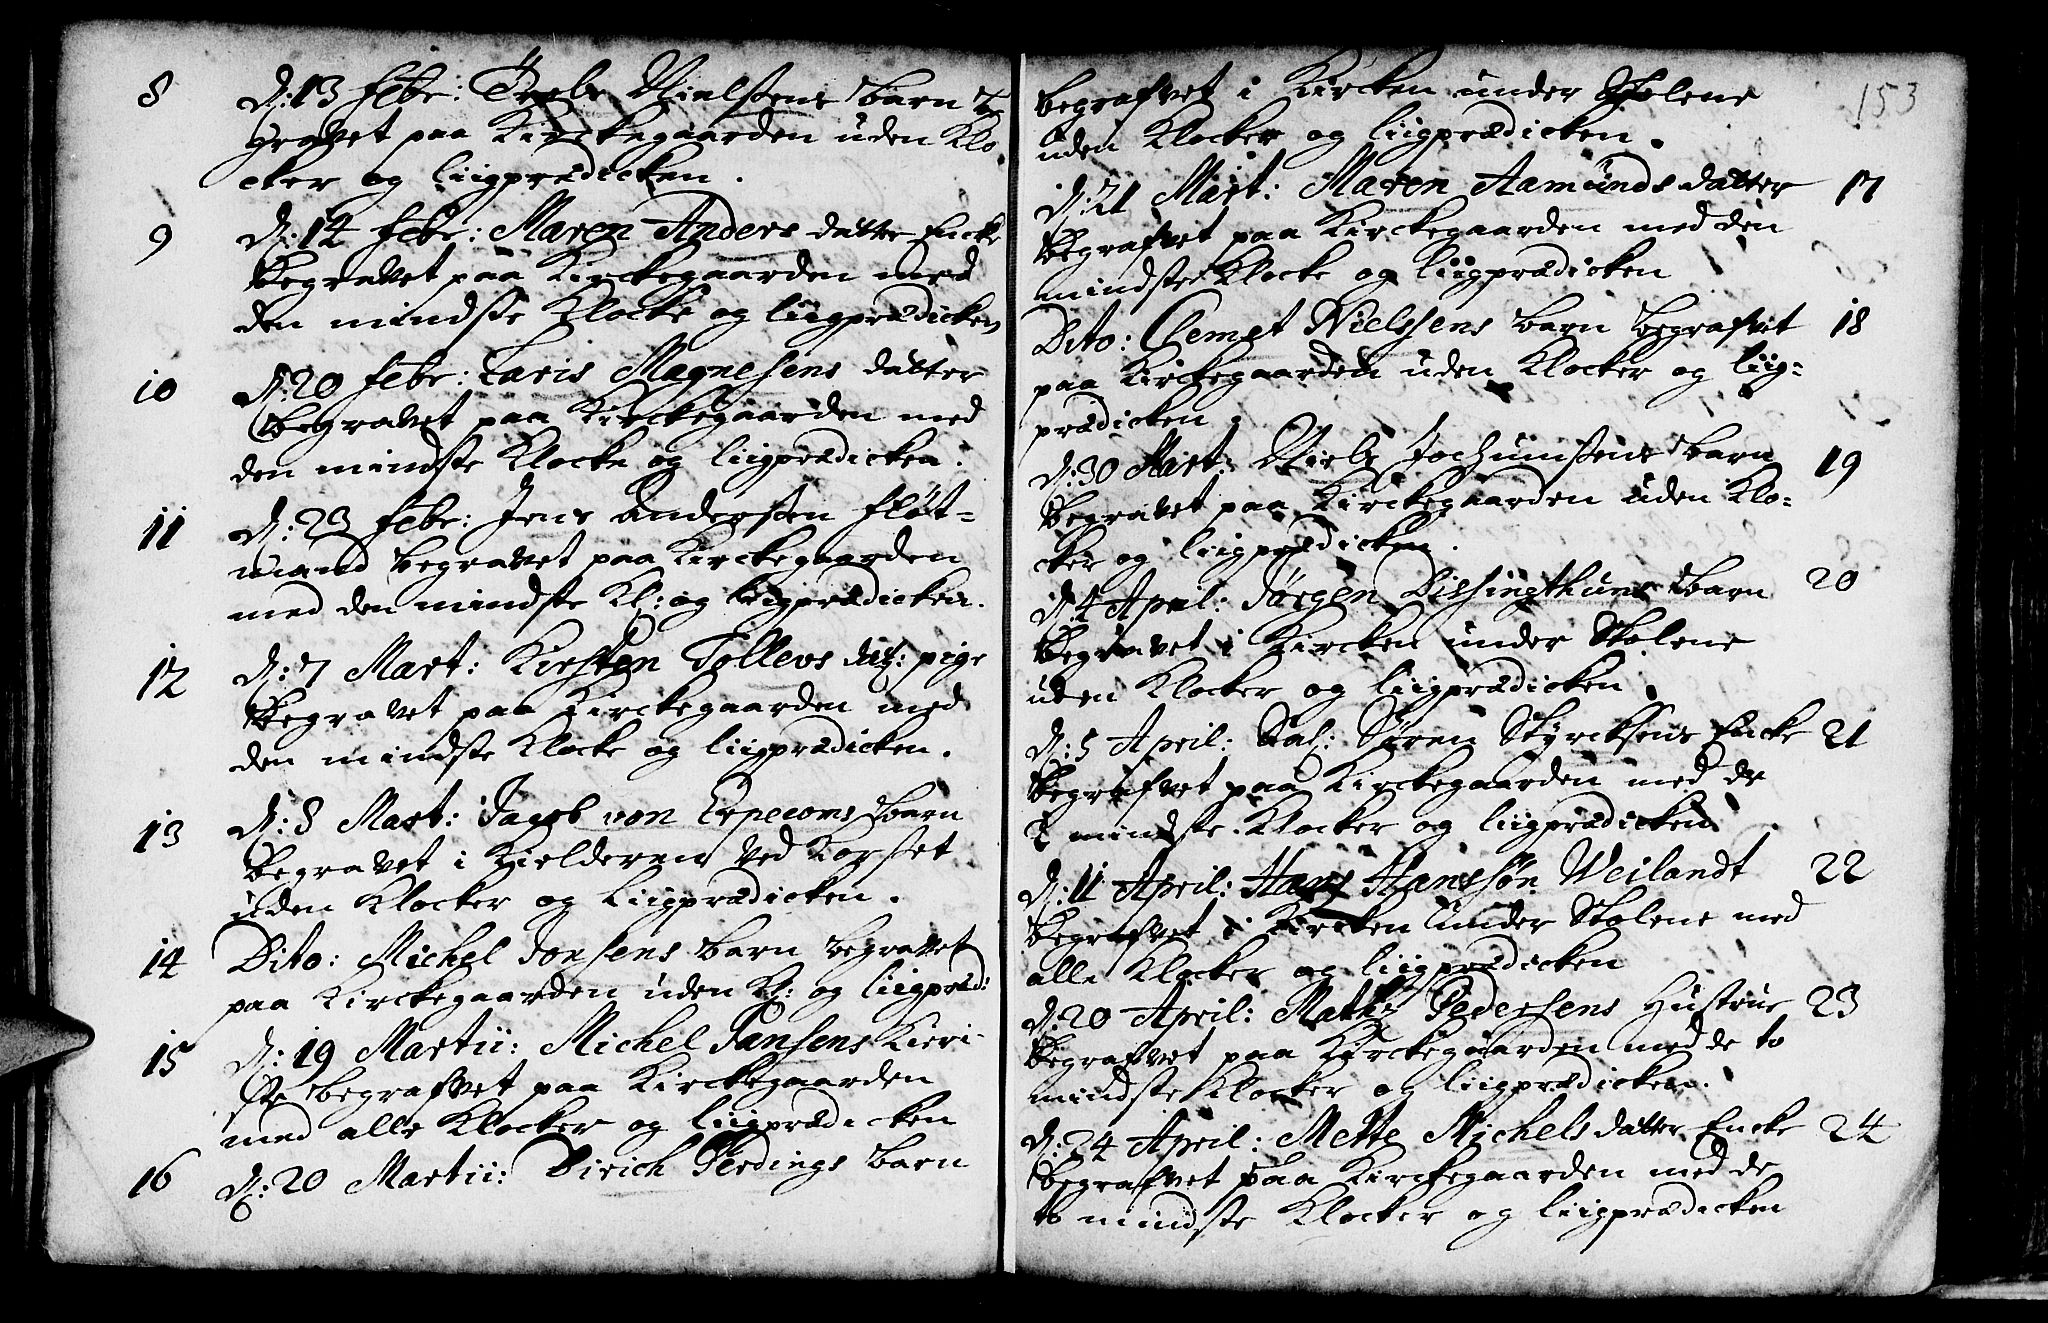 8 D: 13 Febr: Troels Nielssens barn be
gravet paa Kirckegaarden uden Klo
cker og liigprædicken.
9 D: 14 Febr: Maren Anders datter Encke
begravet paa Kirckegaarden med
den mindste Klocke og liigprædicken
10 D: 20 Febr: Karis Magnesens datter
begravet paa Kirckegaarden med
den mindste Klocke og liigprædicken.
11 D: 23 Febr: Jens Anderssen Fløt-
mand begravet paa Kirckegaarden
med den mindste Kl: og liigprædicken.
12 D: 7 Mart: Kirsten Tollevs dat: pige
begravet paa Kirckegaarden med
den mindste Klocke og liigprædicken.
13 D: 8 Mart: Jacob von Erpecoms barn
begravet i Kielderen ved Korset
uden Klocker og Liigprædicken.
14 Dito: Michel Jonsens barn begravet
paa Kirckegaarden uden Kl: og liigprædi:
15 D: 19 Martii: Michel Jansens Kieri-
ste begrafvet paa Kirckegaarden
med alle Klocker og liigprædicken
16 D: 20 Martii: Dirich Gerdings barn
153
begrafvet i Kircken under Stolene
uden Klocker og liigprædicken.
D: 21 Mart: Maren Aamunds datter 17
begrafvet paa Kirckegaarden med den
mindste Klocke og liigprædicken
Dito: Clemet Nielssens barn begrafvet 18
paa Kirckegaarden uden Klocker og liig-
prædicken
D: 30 Mart: Niels Jochumssens barn 19
begravet paa Kirckegaarden uden Klo-
cker og liigprædicken.
D: 4 April: Jørgen Dissingthuns barn 20
begravet i Kircken under Stolene
uden Klocker og liigprædicken.
D: 5 April: Sal: Søren Styrcksens Encke 21
begrafvet paa Kirckegaarden med de
2 mindste Klocker og liigprædicken
D: 11 April: Hans Hanssøn Weilandt 22
begrafvet i Kircken under Stolene med
alle Klocker og liigprædicken
D: 20 April: Mathz Pedersens Hustrue 23
begrafvet paa Kirckegaarden med de to
mindste Klocker og liigprædicken.
D: 24 April: Mette Michels datter Encke 24
begrafvet paa Kirckegaarden med de
to mindste Klocker og liigprædicken